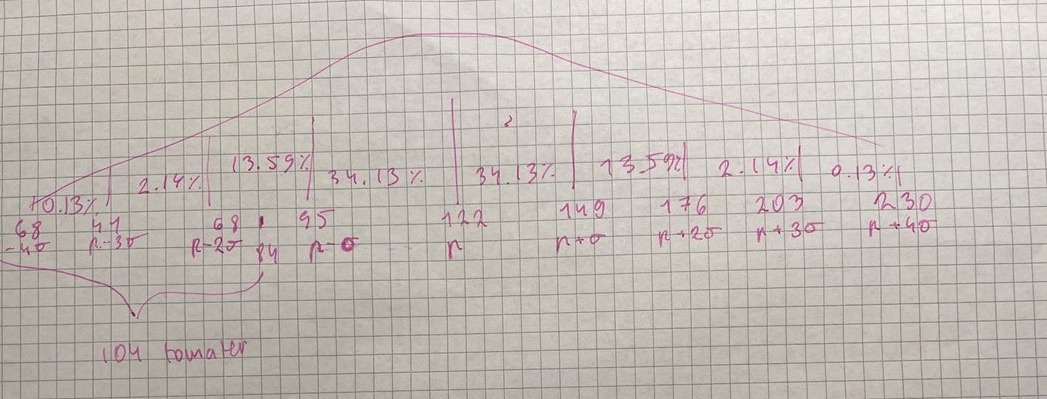 2
13.59% 34.13% 34.13% 13.59% 2.14% 0.13%
0.13% 2.14%
68 41 68 95 122 149 176 203 230
-4σ μ-3σ μ-2σ 84 μ-σ μ μ+σ μ+2σ μ+3σ μ+4σ
104 tomater